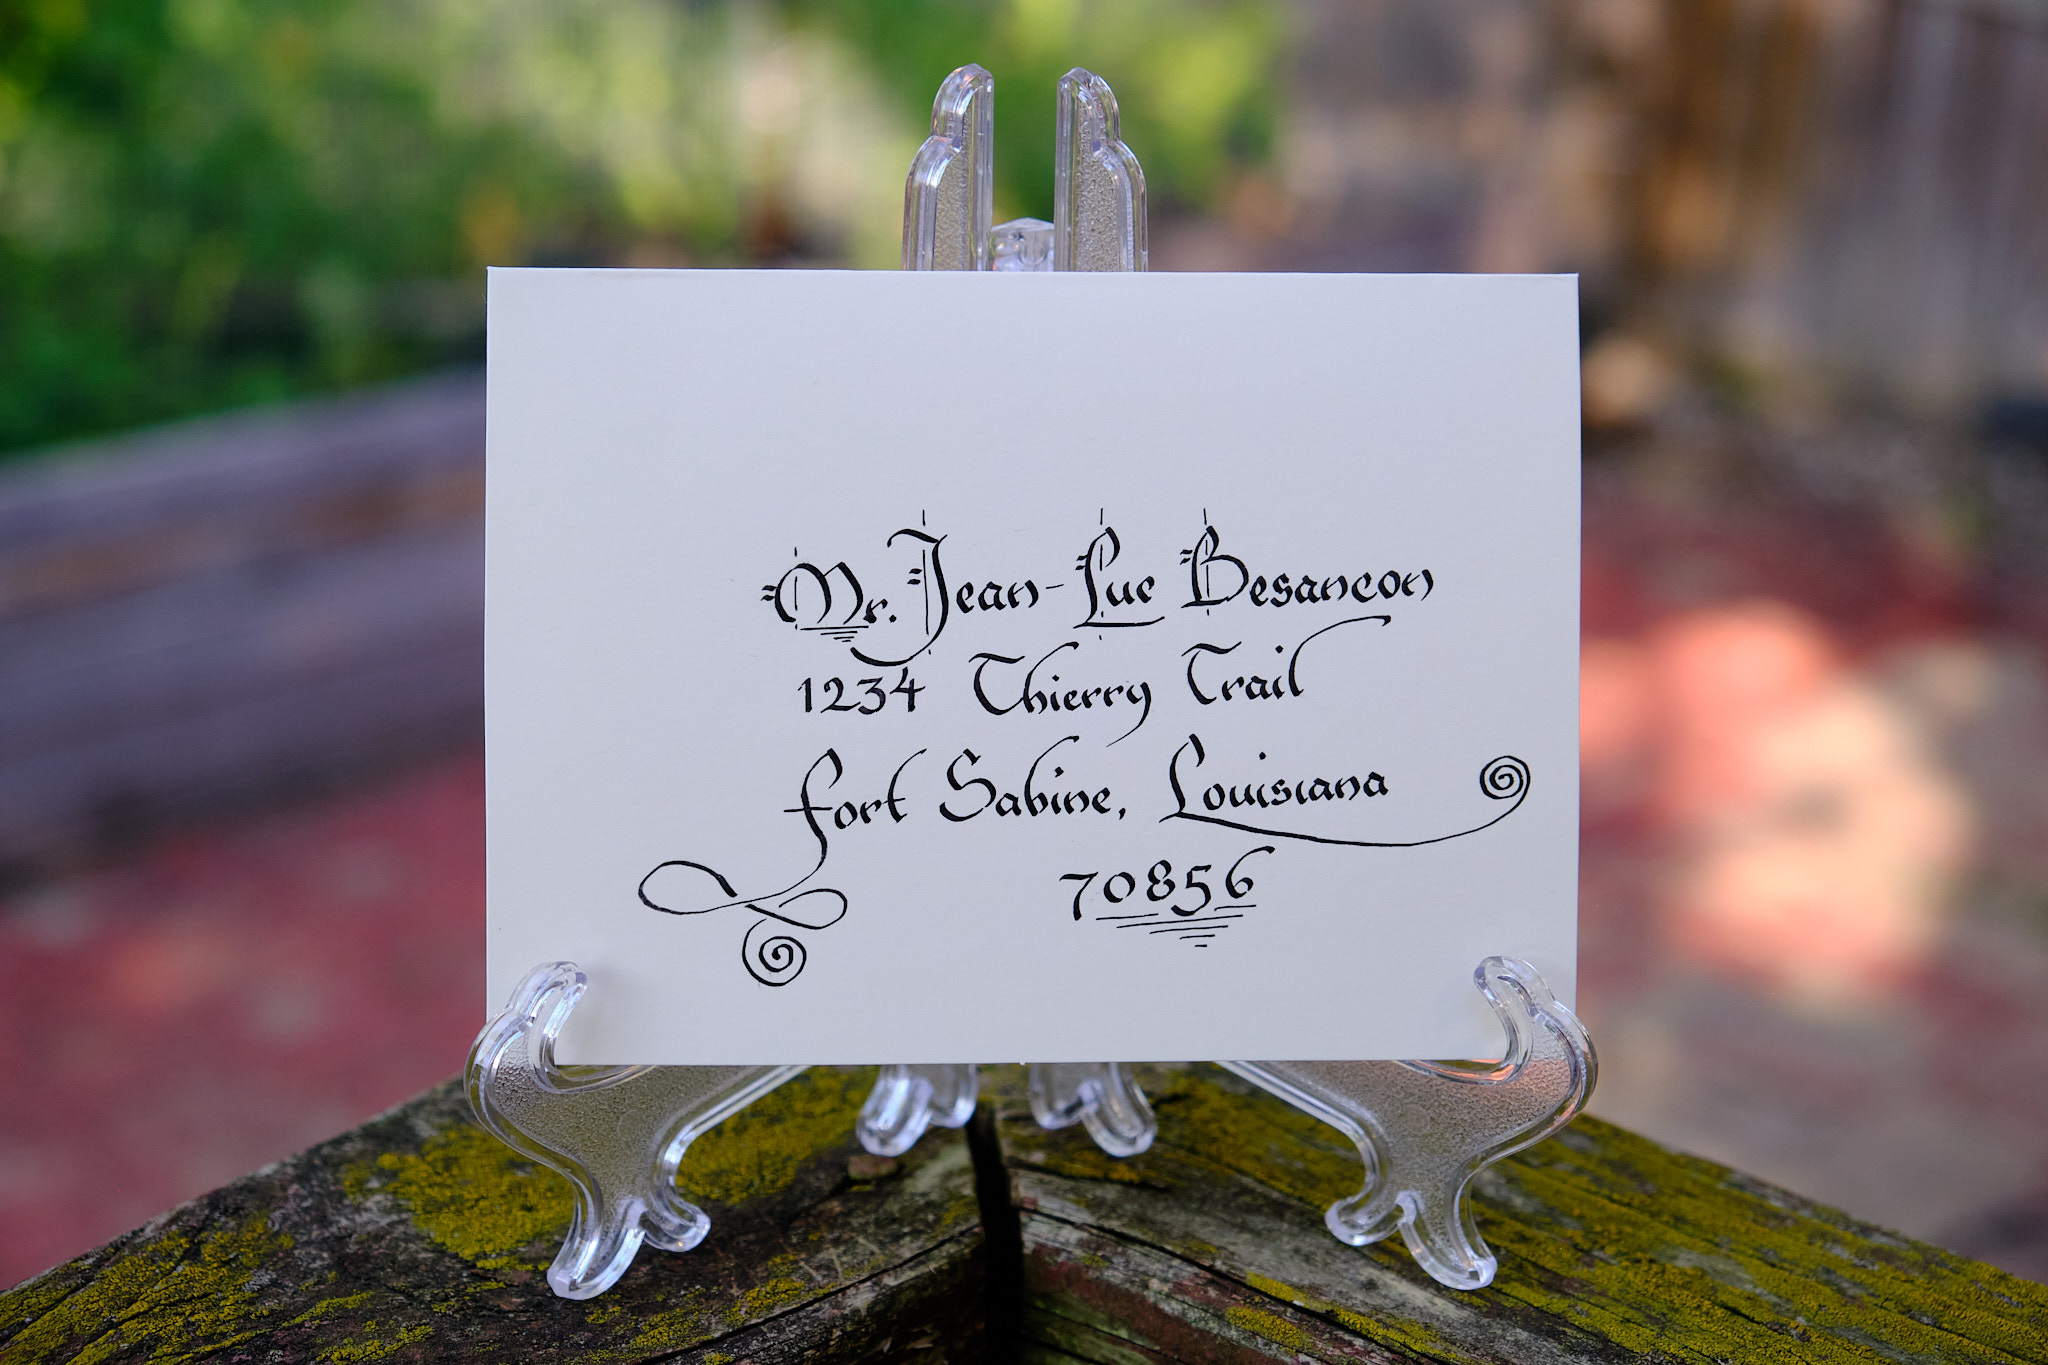 Mr. Jean-Luc Besancon
1234 Thierry Trail
Fort Sabine, Louisiana
70856